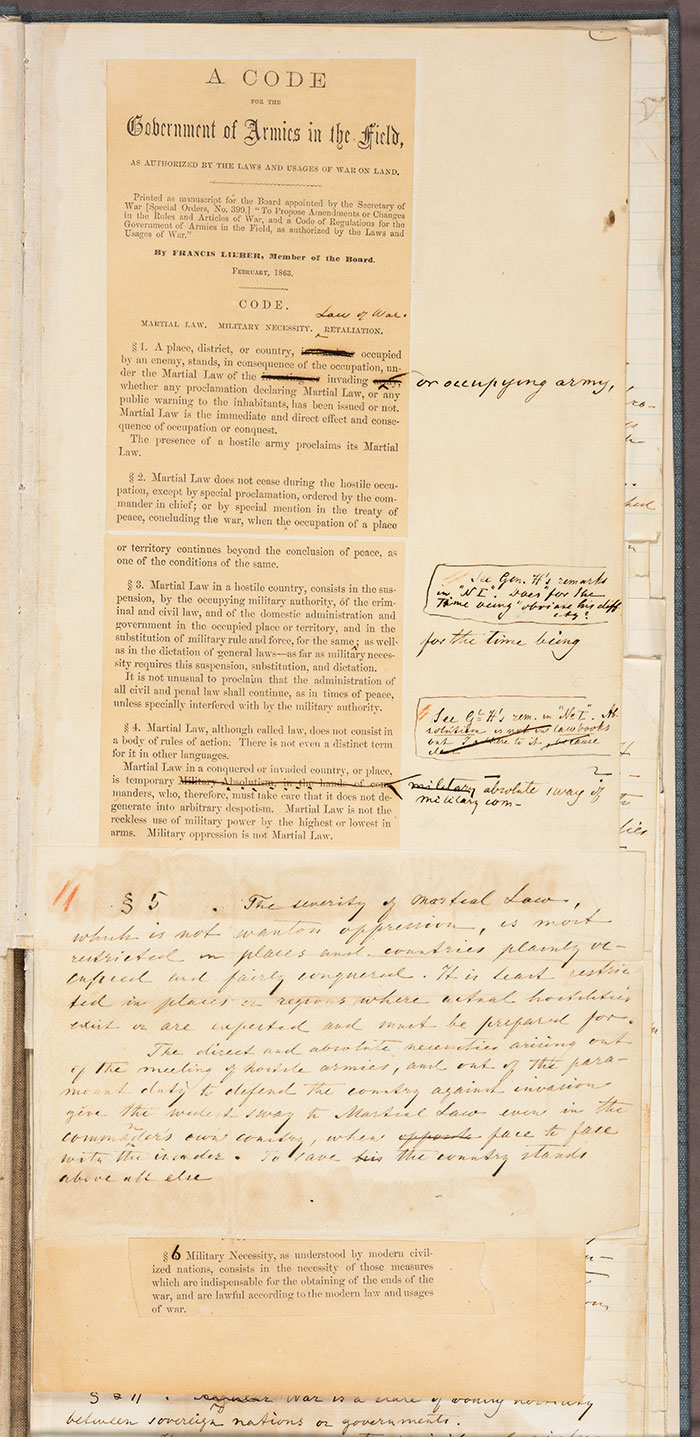 A CODE
FOR THE
Government of Armies in the Field,
AS AUTHORIZED BY THE LAWS AND USAGES OF WAR ON LAND.
Printed as manuscript for the Board appointed by the Secretary of
War [Special Orders, No. 399.] "To Propose Amendments or Changes
in the Rules and Articles of War, and a Code of Regulations for the
Government of Armies in the Field, as authorized by the Laws and
Usages of War."
By FRANCIS LIEBER, Member of the Board.
FEBRUARY, 1863.
CODE.
Law of War.
MARTIAL LAW. MILITARY NECESSITY. RETALIATION.
§ 1. A place, district, or country, occupied
by an enemy, stands, in consequence of the occupation, un-
der the Martial Law of the invading
or occupying army,
whether any proclamation declaring Martial Law, or any
public warning to the inhabitants, has been issued or not.
Martial Law is the immediate and direct effect and conse-
quence of occupation or conquest.
The presence of a hostile army proclaims its Martial
Law.
§ 2. Martial Law does not cease during the hostile occu-
pation, except by special proclamation, ordered by the com-
mander in chief; or by special mention in the treaty of
peace, concluding the war, when the occupation of a place
or territory continues beyond the conclusion of peace, as
one of the conditions of the same.
§ 3. Martial Law in a hostile country, consists in the sus-
pension, by the occupying military authority, of the crim-
inal and civil law, and of the domestic administration and
government in the occupied place or territory, and in the
substitution of military rule and force, for the same; as well
as in the dictation of general laws—as far as military neces-
sity requires this suspension, substitution, and dictation.
It is not unusual to proclaim that the administration of
all civil and penal law shall continue, as in times of peace,
unless specially interfered with by the military authority.
See Gen. H's remarks
in "No I". Does for the
time being obviate his diff
for the time being
§ 4. Martial Law, although called law, does not consist in
a body of rules of action. There is not even a distinct term
for it in other languages.
Martial Law in a conquered or invaded country, or place,
is temporary Military Absolutism, in the hands of com-
manders, who, therefore, must take care that it does not de-
generate into arbitrary despotism. Martial Law is not the
reckless use of military power by the highest or lowest in
arms. Military oppression is not Martial Law.
See Gl H's rem. in "No I". Ab-
solutism is not in law books
but
military absolute sway of
military com-
§ 5 . The severity of Martial Law,
which is not wanton oppression, is most
restricted in places and countries plainly oc-
cupied and fairly conquered. It is least restric-
ted in places or regions where actual hostilities
exist or are expected and must be prepared for.
The direct and absolute necessities arising out
of the meeting of hostile armies, and out of the para-
mount duty to defend the country against invasion
give the widest sway to Martial Law even in the
commander's own country, when opposite face to face
with the invader. To save his the country stands
above all else
§ 6 Military Necessity, as understood by modern civil-
ized nations, consists in the necessity of those measures
which are indispensable for the obtaining of the ends of the
war, and are lawful according to the modern law and usages
of war.
War is a state of
between sovereign nations or governments.